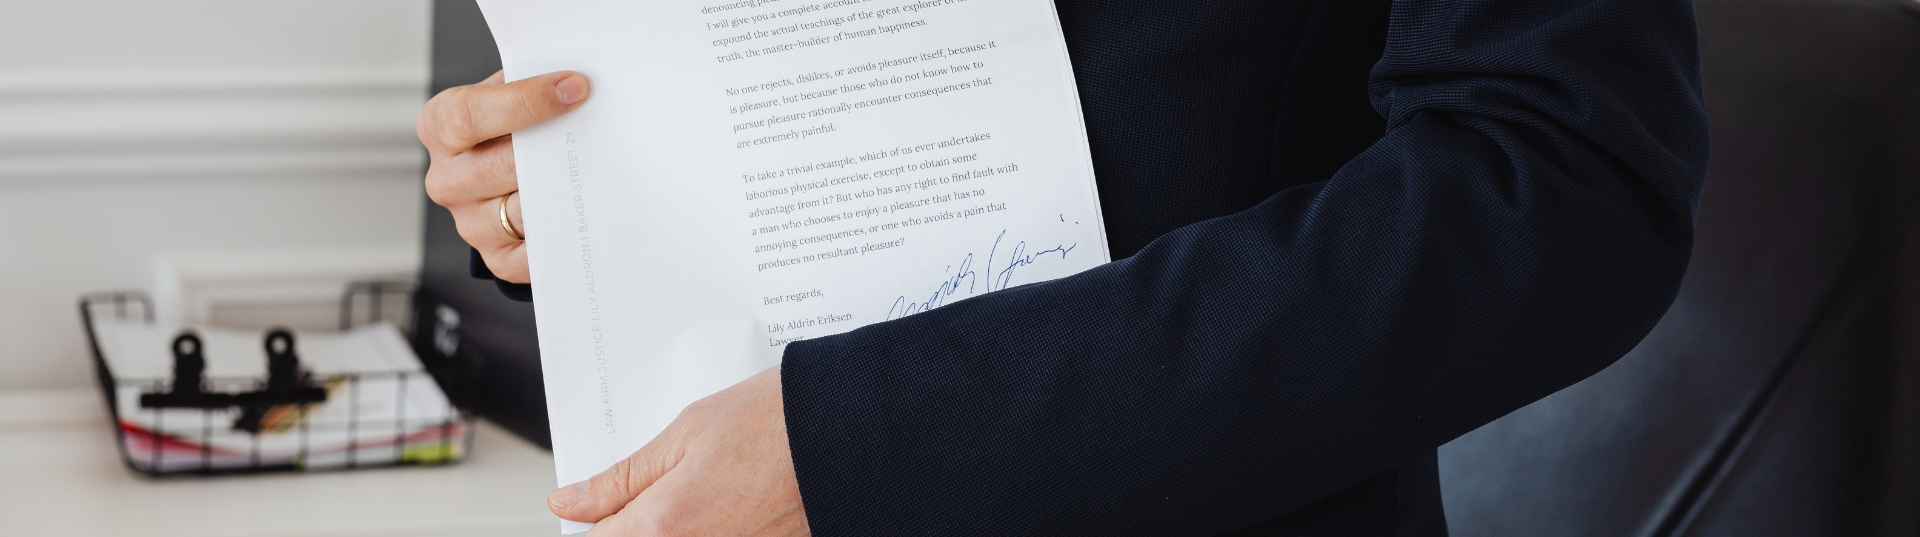 denouncing
I will give you a complete account
expound the actual teachings of the great explorer of
truth, the master-builder of human happiness.
No one rejects, dislikes, or avoids pleasure itself, because it
is pleasure, but because those who do not know how to
pursue pleasure rationally encounter consequences that
are extremely painful.
To take a trivial example, which of us ever undertakes
laborious physical exercise, except to obtain some
advantage from it? But who has any right to find fault with
a man who chooses to enjoy a pleasure that has no
annoying consequences, or one who avoids a pain that
produces no resultant pleasure?
Best regards,
Lily Aldrin Eriksen
Lawyer
LAW FIRM JUSTICE LILY ALDRON | BAKER STREET 29